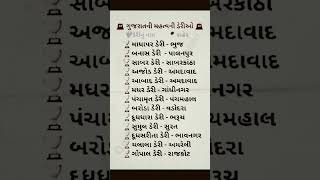 ગુજરાતની મહત્વની ડેરીઓ
ડેરીનું નામ શહેર
માધાપર ડેરી - ભુજ
બનાસ ડેરી - પાલનપુર
સાબર ડેરી - સાબરકાંઠા
અજોડ ડેરી - અમદાવાદ
આબાદ ડેરી - અમદાવાદ
મધર ડેરી - ગાંધીનગર
પંચામૃત ડેરી - પંચમહાલ
બરોડા ડેરી - વડોદરા
દૂધધારા ડેરી - ભરૂચ
સુમુલ ડેરી - સુરત
દૂધસરીતા ડેરી - ભાવનગર
ચલાલા ડેરી - અમરેલી
ગોપાલ ડેરી - રાજકોટ